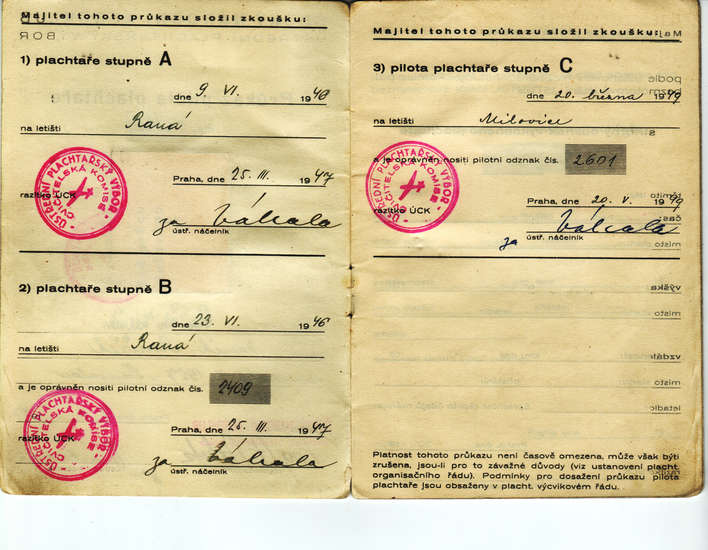 Majitel tohoto průkazu složil zkoušku:
1) plachtaře stupně A
dne 9. VI. 1946
na letišti Raná
ÚSTŘEDNÍ PLACHTAŘSKÝ VÝBOR
CVIČITELSKÁ KOMISE
Praha, dne 25. III. 1947
razítko ÚCK
za
ústř. náčelník
2) plachtaře stupně B
dne 23. VI. 1946
na letišti Raná
a je oprávněn nositi pilotní odznak čís. 2409
ÚSTŘEDNÍ PLACHTAŘSKÝ VÝBOR
CVIČITELSKÁ KOMISE
Praha, dne 25. III. 1947
razítko ÚCK
za
ústř. náčelník
Majitel tohoto průkazu složil zkoušku:
3) pilota plachtaře stupně C
dne 20. března 1949
na letišti Milovice
a je oprávněn nositi pilotní odznak čís. 2601
ÚSTŘEDNÍ PLACHTAŘSKÝ VÝBOR
CVIČITELSKÁ KOMISE
Praha, dne 20. V. 1949
razítko ÚCK
za
ústř. náčelník
Platnost tohoto průkazu není časově omezena, může však býti
zrušena, jsou-li pro to závažné důvody (viz ustanovení placht.
organisačního řádu). Podmínky pro dosažení průkazu pilota
plachtaře jsou obsaženy v placht. výcvikovém řádu.